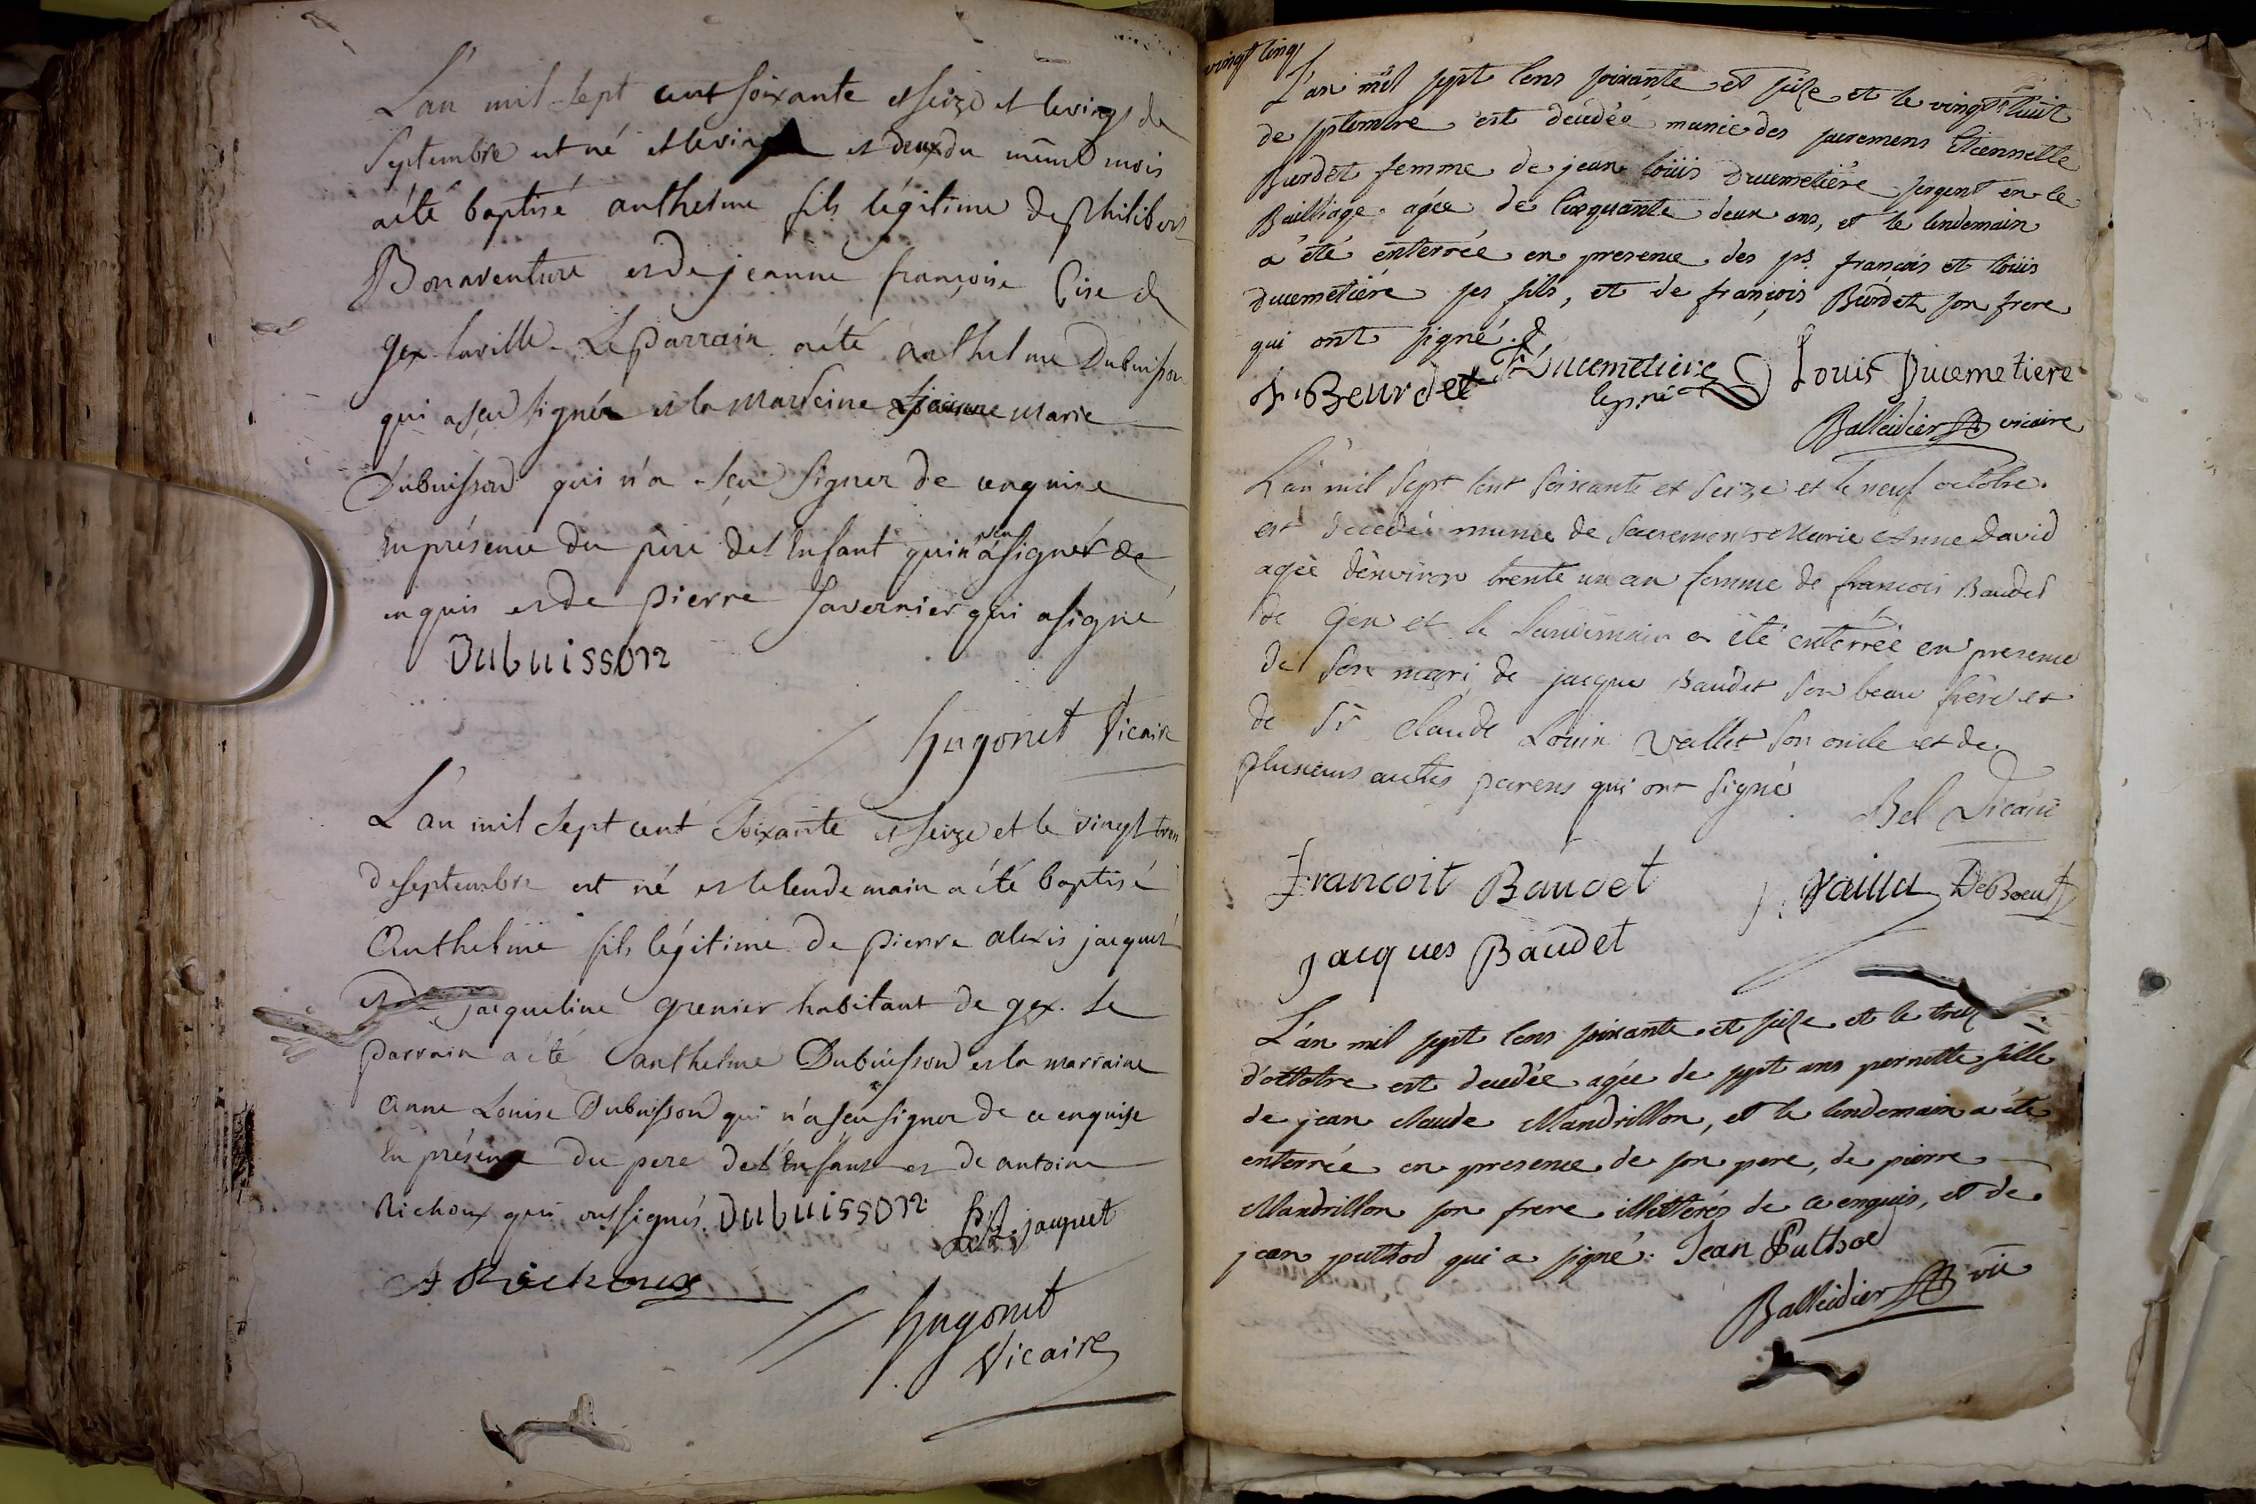 L'an mil sept cent soixante et seize et le vingt de
Septembre est né et le vingt et deux du même mois
a été baptisé anthelme fils légitime de Philibert
Bonaventure et de jeanne françoise Cise de
gex-la ville. Le parrain a été anthelme Dubuisson
qui a sçu signer et la marreine jeanne marie
Dubuisson qui n'a sçu signer de ce enquise
En présence du père de l'enfant qui n'a sçu signer de
enquis et de pierre Tavernier qui a signé
Dubuisson
hugonet Vicaire
L'an mil sept cent soixante et seize et le vingt trois
de septembre est né et le lendemain a été baptisé
Anthelme fils légitime de pierre alexis jacquet
et de jacqueline grenier habitant de gex. Le
parrain a été anthelme Dubuisson et la marraine
Anne Louise Dubuisson qui n'a sçu signer de ce enquise
En présence du pere de l'Enfant et de antoine
Richoux qui ont signés. Dubuisson jacquet
A Richoux
hugonet
Vicaire
vingt cinq
L'an mil sept cens soixante et seize et le vingt huit
de septembre est décédée munie des sacremens Etiennette
Burdet femme de jean loüis Ducemetiére sergent en ce
Bailliage agée de cinquante deux ans, et le lendemain
a été enterrée en presence des srs. françois et loüis
ducemetiére ses fils, et de françois Burdet son frere
qui ont signé.
f. Beurdet f. Ducemetiere Louis Ducemetiere
Balleidier vicaire
L'an mil sept cent soixante et seize et le neuf octobre
est décédée munie de sacrements Marie Anne David
agée d'environ trente un an femme de francois Baudet
de Gex et le lendemain a été enterrée en presence
de son mari de jacque Baudet son beau frère et
de Sr Claude Louin Vallet son oncle et de
plusieurs autres parens qui ont signé
Bel Vicaire
Francoit Baudet Vailla DeBoeuf
jacques Baudet
L'an mil sept cens soixante et seize et le treize
d'octobre est decedée agée de sept ans pernette fille
de jean claude Mandrillon, et le lendemain a été
enterrée en presence de son pere, de pierre
Mandrillon son frere illettérés de ce enquis, et de
jean puthod qui a signé. Jean Puthod
Balleidier vic